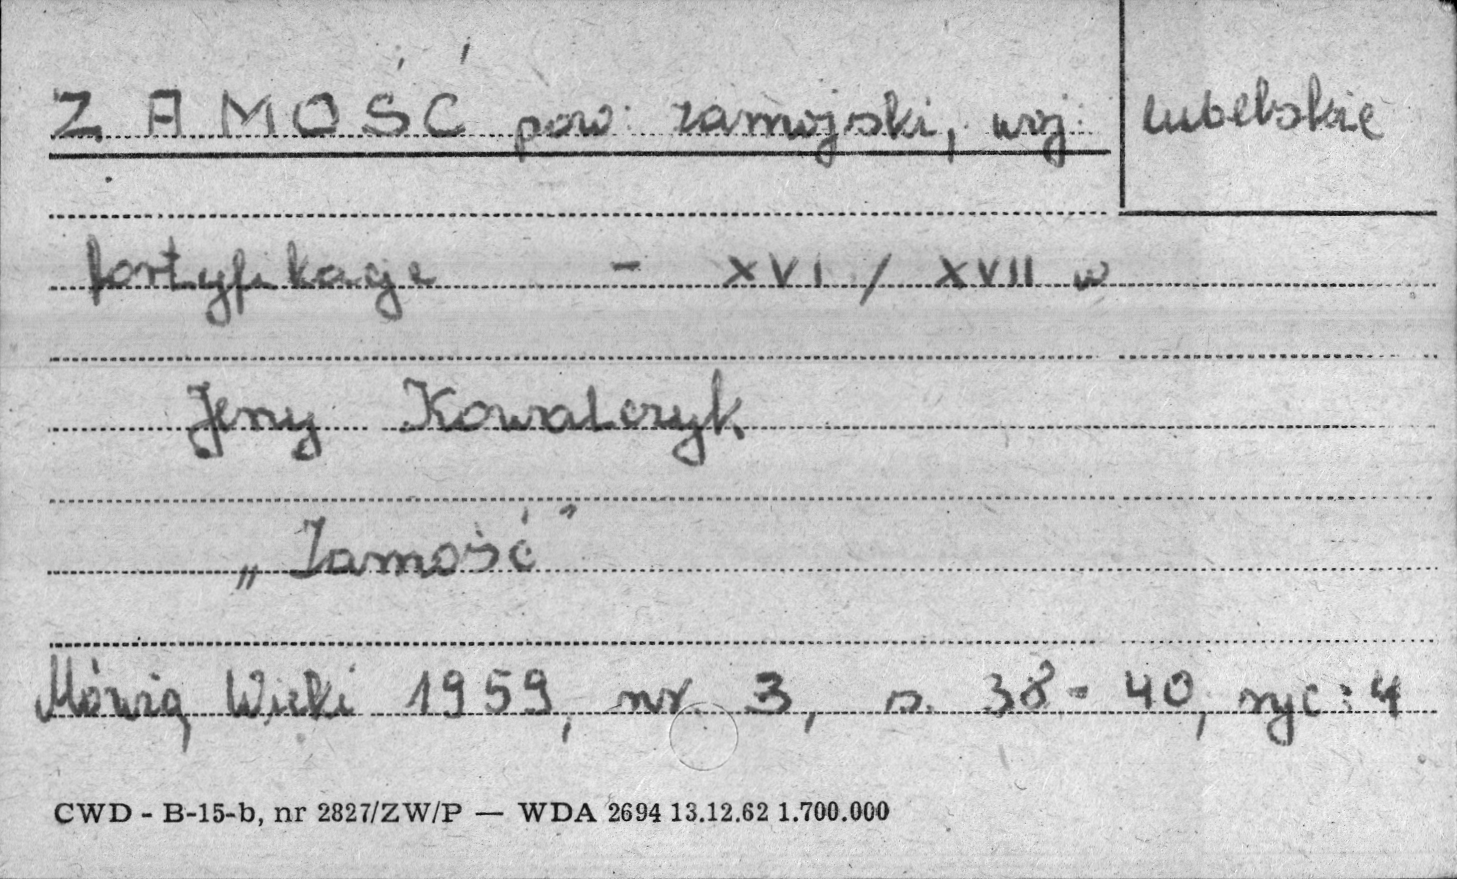 ZAMOŚĆ pow. zamojski, woj. lubelskie
fortyfikacje - XVI / XVII w
Jerzy Kowalczyk
„Zamość"
Mówią Wieki 1959, nr. 3, s. 38-40, ryc: 4
CWD - B-15-b, nr 2827/ZW/P — WDA 2694 13.12.62 1.700.000